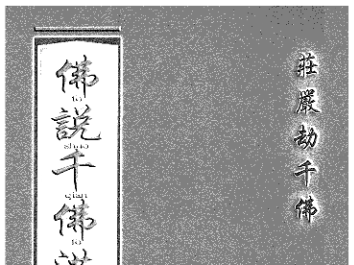 莊嚴劫千佛
佛說千佛
fo
shuo
qian
fo